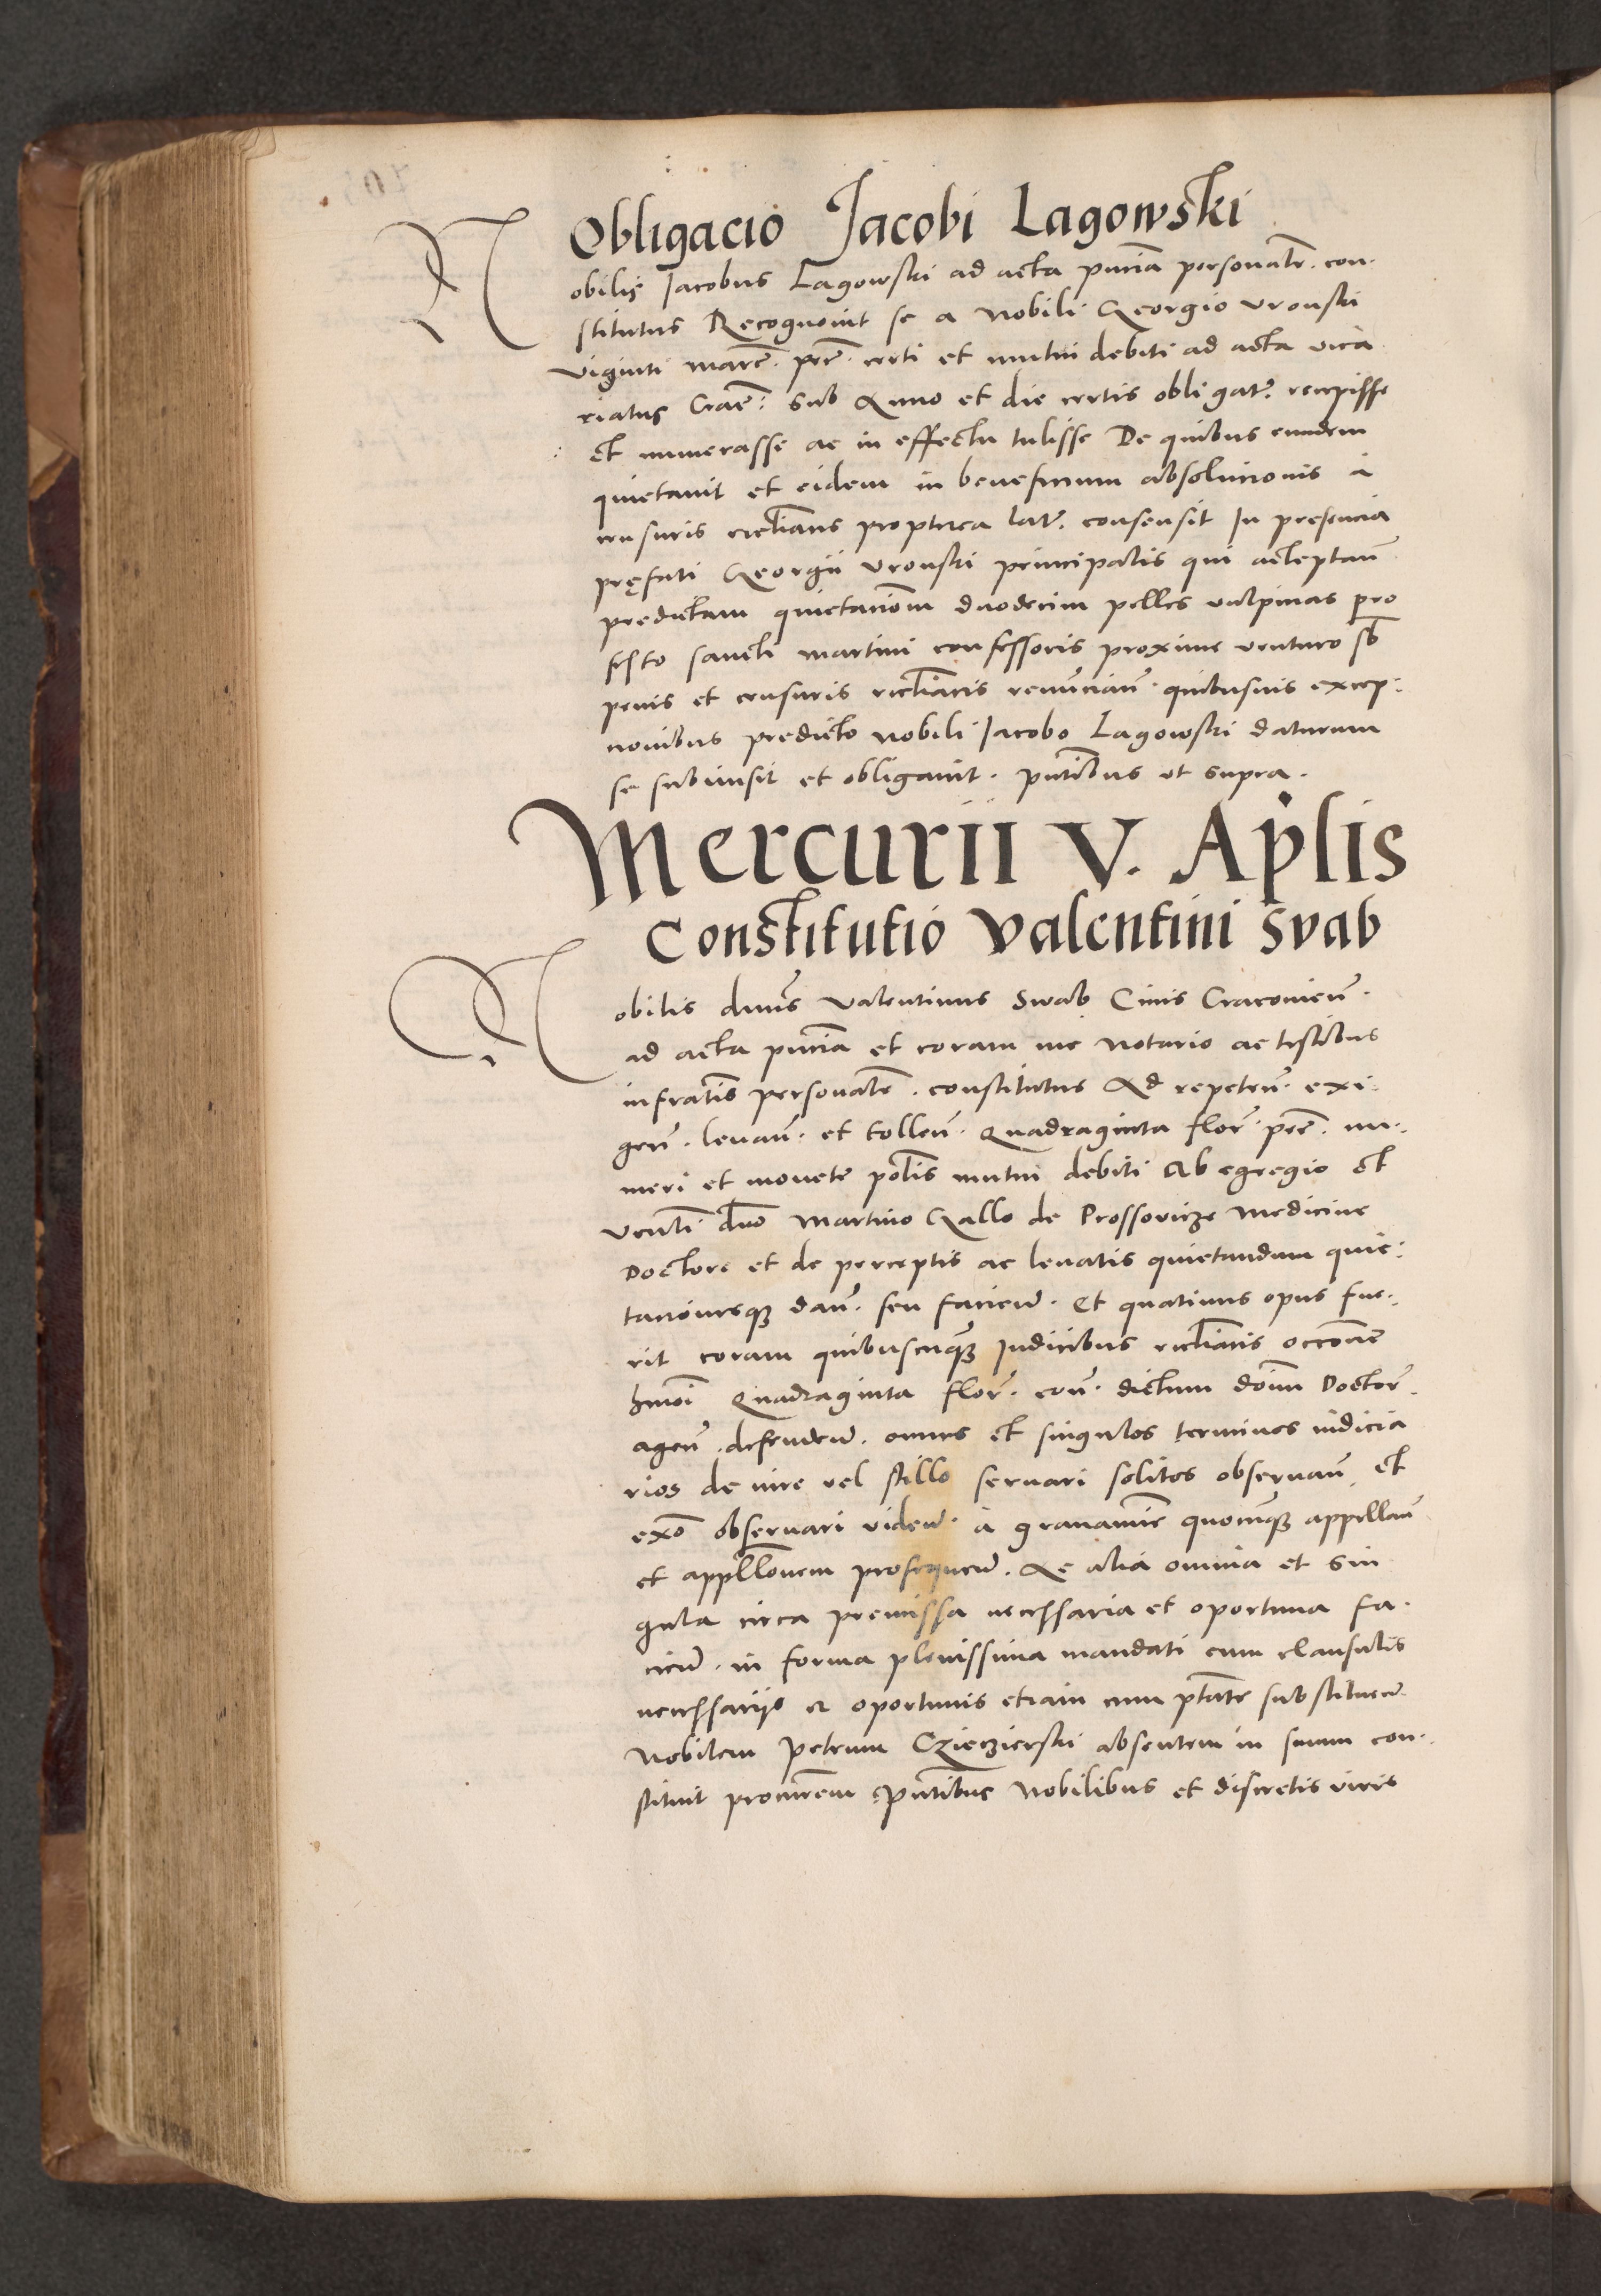 Obligacio Jacobi Lagowski
Nobilis Jacobus Lagowski ad acta pn̄cia personalr̄. con-
stitutus Recognouit se a Nobili Georgio Vronski
viginti marc̄. pec̄. certi et mutui debiti ad acta vica
riatus Crac̄: sub Anno et die certis obligat̄. recepisse
et numerasse ac in effectu tulisse De quibus eundem
quietauit et eidem in beneficium absolucionis à
censuris ecclīcis propterea lat̄. consensit In presencia
pręfati Georgii Vronski principalis qui acceptan̄
predictam quietacionem duodecim pelles vulpinas pro
festo sancti martini confessoris proxime venturo sb̄
penis et censuris eccliācis renuncian̄. quibusuis excep-
cionibus predicto nobili Jacobo Lagowski daturum
se submisit et obligauit. pn̄tibus vt supra.
Mercurii V. Apłis
Constitutio Valentini Svab
Nobilis dn̄us Valentinus Swab Ciuis Cracouien̄.
ad acta pn̄cia et coram me Notario ac testibus
infratis̄ personalr̄. constitutus Ad repeten̄. exi-
gen̄. leuan̄. et tollen̄. Quadraginta flor̄. pec̄. nu-
meri et monete pol̄is mutui debiti Ab egregio et
Venl̄i dn̄o Martino Gallo de Prossovicze Medicine
Doctore et de perceptis ac leuatis quietandum quie-
tacionesqꝫ dan̄. seu facien̄. Et quatinus opus fue-
rit coram quibuscūqꝫ Iudicibus eccliācis occōne
hm̄oi Quadraginta flor̄. con̄. dictum dom̄ Doctor̄.
agen̄. defenden̄. omnes et singulos terminos iudicia
rios de iure vel stillo seruari solitos obseruan̄. et
ex̄o obseruari viden̄. à grauamīe quocūqꝫ appellan̄
et appll̄onem prosequen̄. Ac alia omnia et sin
gula circa premissa necessaria et oportuna fa-
cien̄. in forma plenissima mandati cum clausulis
necessariis et oportunis etiam cum pt̄ate substituen̄.
Nobilem Petrum Cziecierski absentem in suum con-
stituit procur̄em pn̄tibus Nobilibus et discretis viris